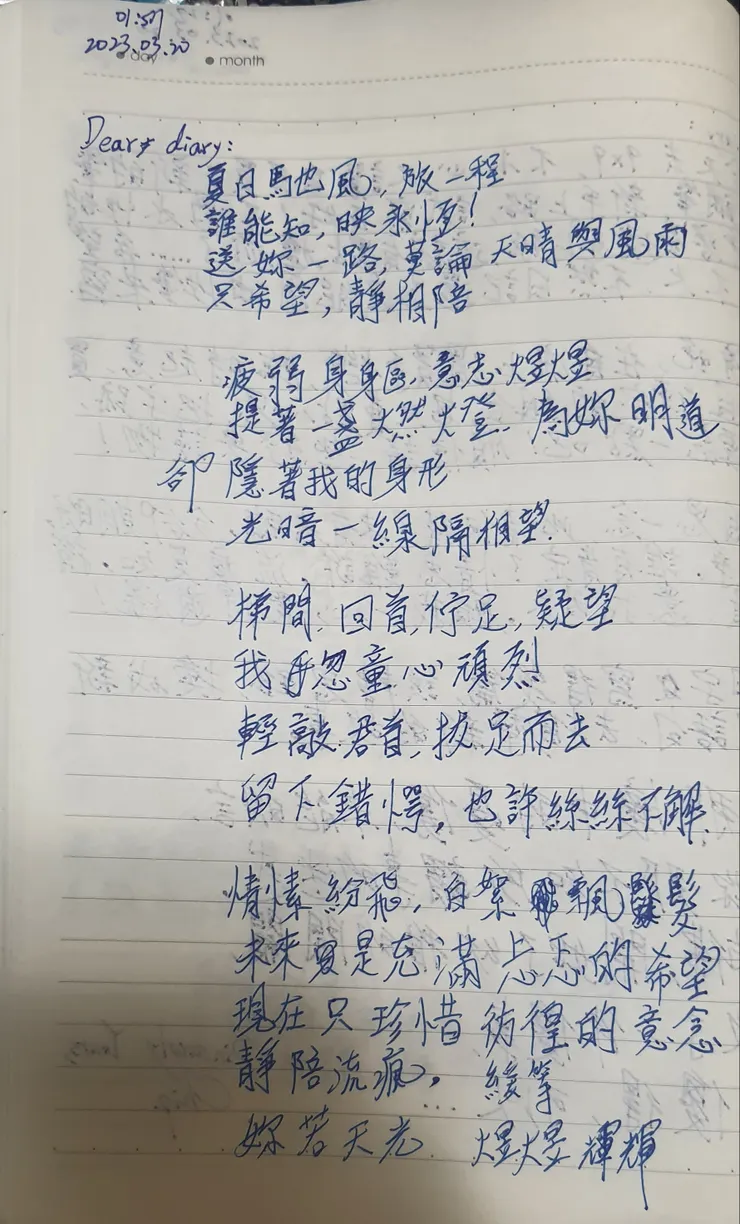 01:57
2023.03.20
day month
Dear diary:
夏日馬也風，放一程
誰能知，映永恆！
送妳一路，莫論天晴與風雨
只希望，靜相陪
疲弱身軀，意志煜煜
提著一盞燃燈，為妳明道
卻隱著我的身形
光暗一線隔相望
梯間，回首，佇足，疑望
我忽童心頑烈
輕敲君首，拔足而去
留下錯愕，也許絲絲不解
情愫紛飛，白絮飄髮
未來更是充滿忐忑的希望
現在只珍惜彷徨的意念
靜陪流瘋，緩等
妳若天光 煜煜輝輝